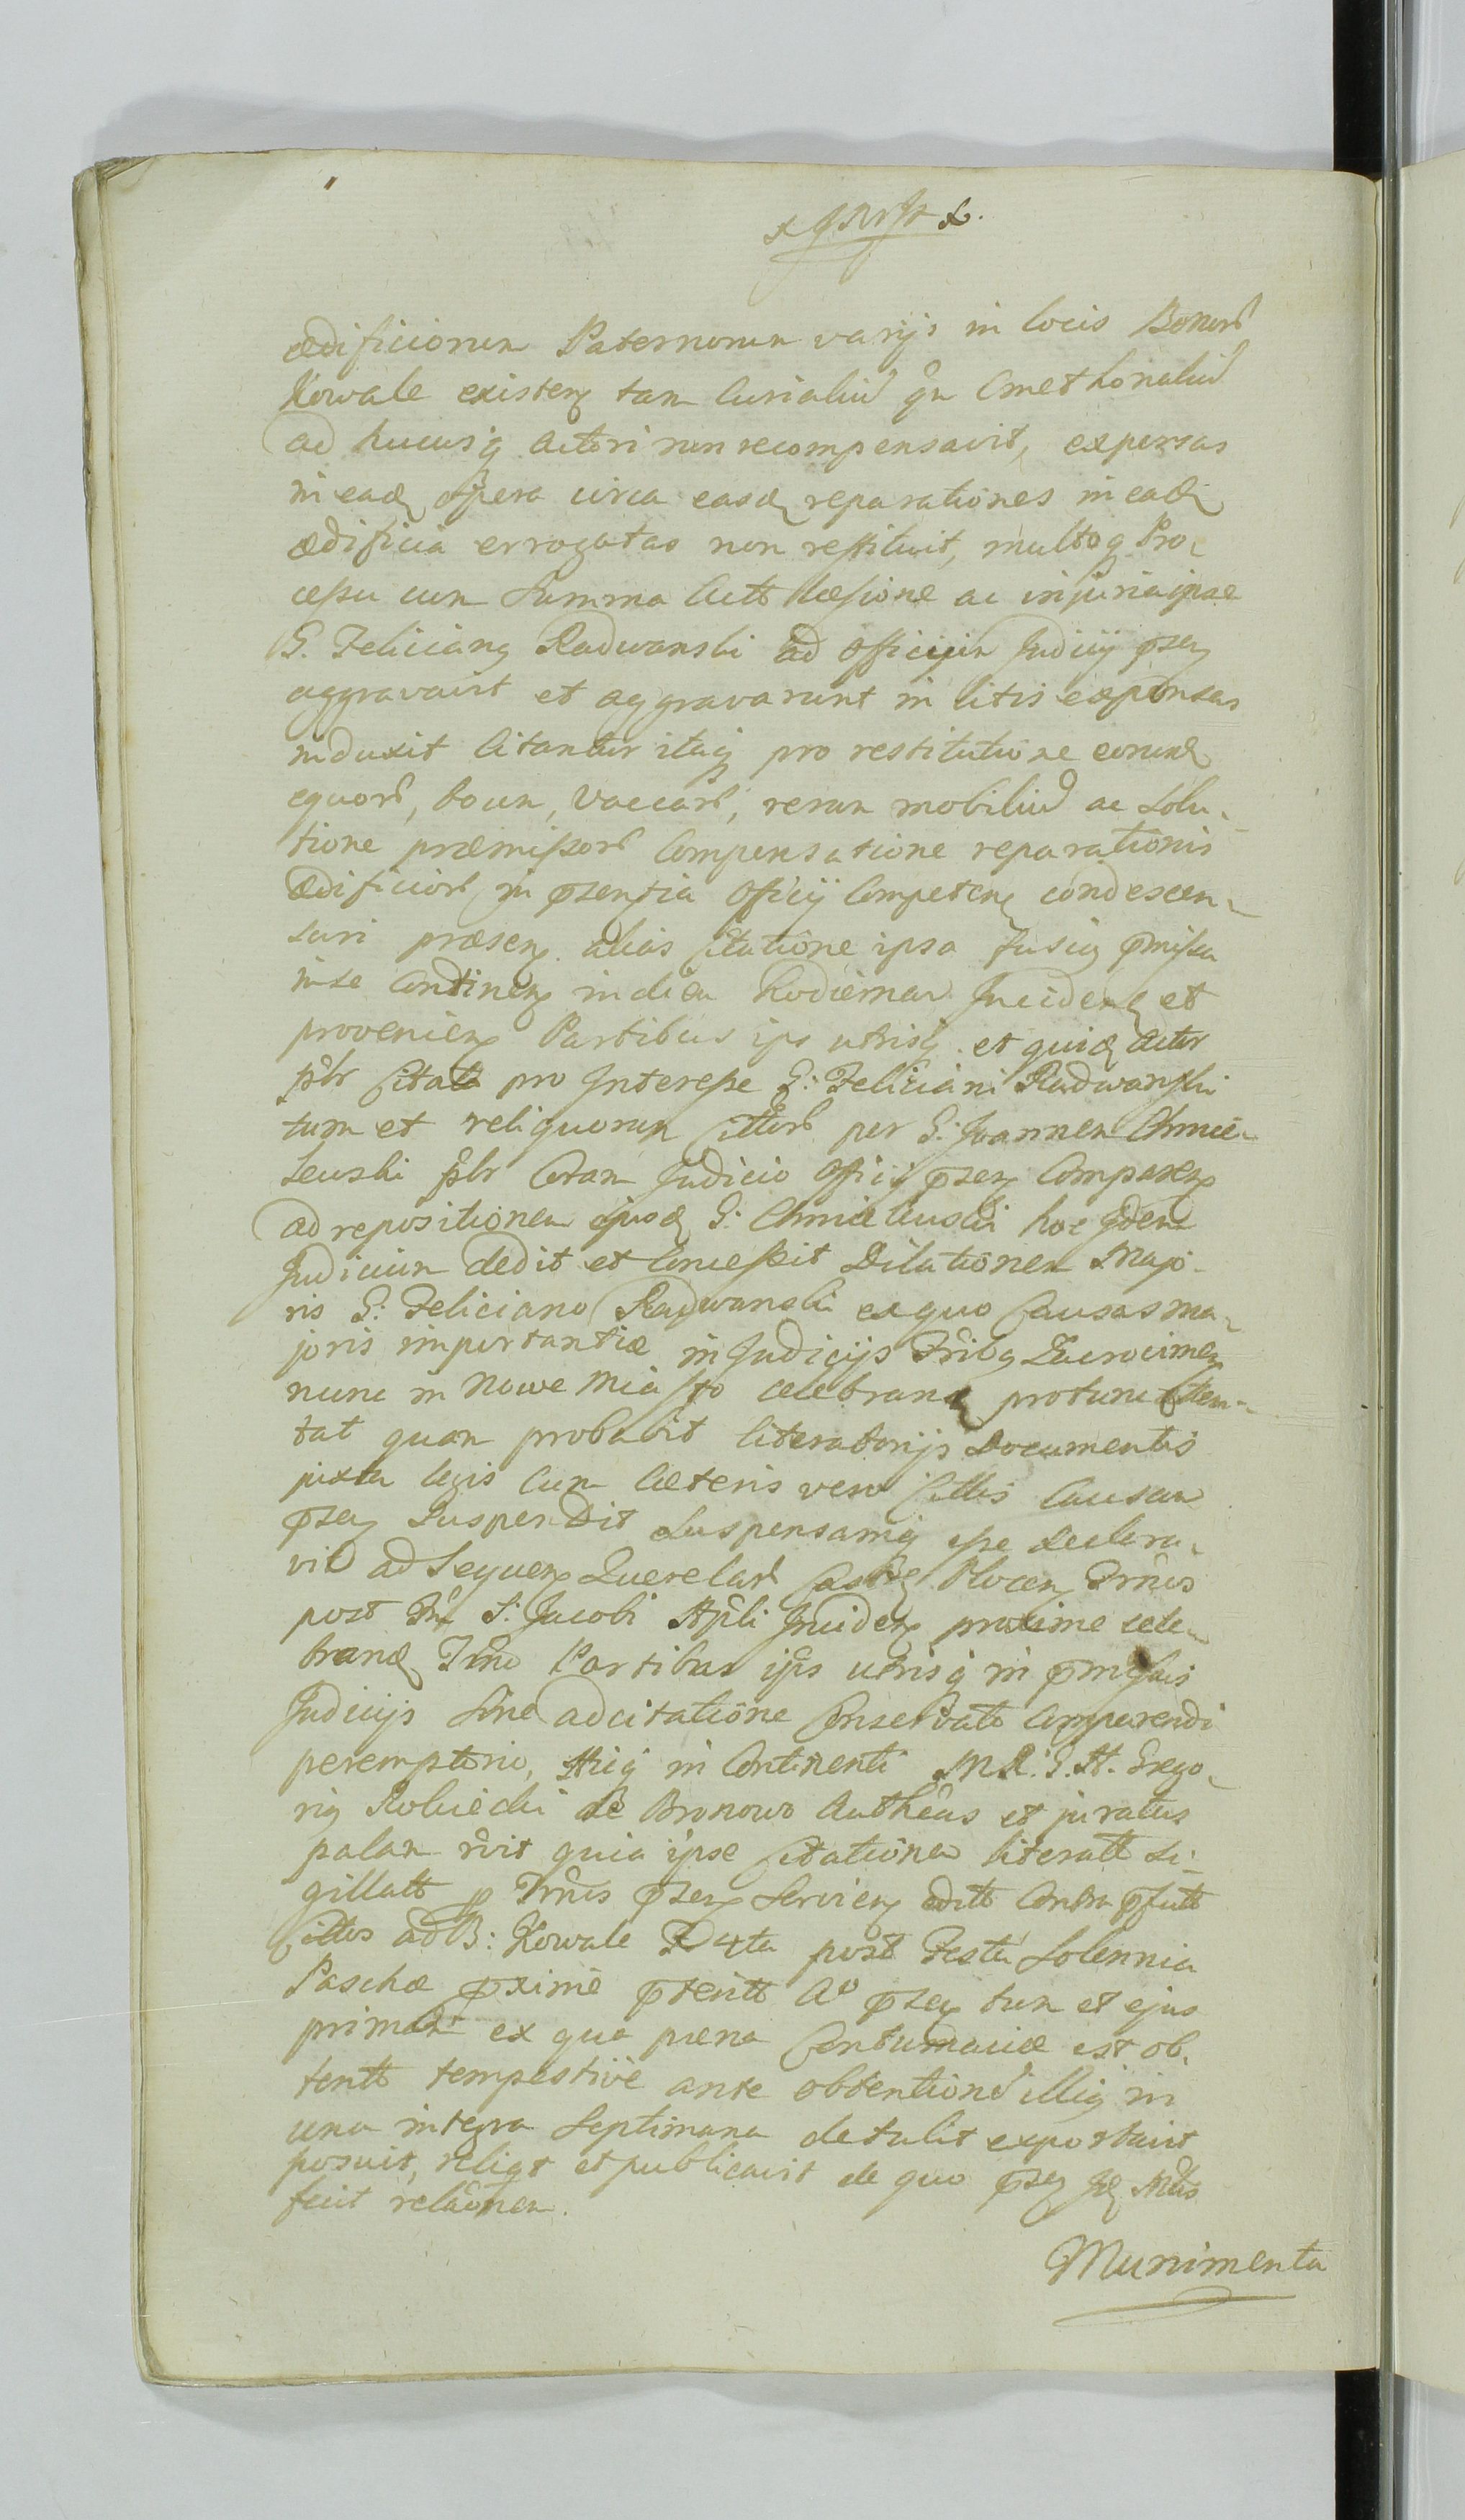 ædificiorum Paternorum varijs in locis Bonor
Kowale existen tam Curialiu qm Cmethonaliu
ad hucusq Actori non recompensavit, expensas
in ead opera circa easd reparationes in ead
ædificia errogatas non restituit, multoq Pro
cessu cum Summa Actt læsione ac injuria ipse
G. Felicianq Radwanski ad officium Judicij pñsen
aggravavit et aggravarunt in litis expensas
induxit Citantur itaq pro restitutione eorund
equor, boum, Vaccar, rerum mobiliu ac Solu
tione præmissor Compensatione reparationis
Ædificior in pñsentia Officij Competen condescen
suri præsen alias Citatione ipsa fusiq pmissa
in se Continen in diem hodiernam Inciden et
provenien Partibus ips utrisq et quid Actor
plr Citatt pro Interesse G: Feliciani Radwanski
tum et reliquorum Cittor per G: Joannem Chmie
lewski plr Coram Judicio Officij pñsen Comparen
ad repositionem ejusd G: Chmielewski hoc Idem
Judicium dedit et Concessit Dilationem Majo
ris G: Feliciano Radwanski ex quo Causas ma
joris importantiæ in Judicijs Tribq Zacrocimen
nunc in Nowe Miasto celebran pro tunc atten
tat quam probabit literatorijs Documentis
juxta legis Cum Cæteris vero Cittis Causam
pñsen Suspendit Suspensamq esse declara
vit ad Sequen Querelar Castr Plocen Trnos
post Fm S: Jacobi Apli Inciden proxime cele
brand Trno Partibus ips utrisq in pmissis
Judicijs Sine adcitatione Conservato Comparendi
peremptorio, Hicq in Continenti M.R. G. H. Grego
riq Robiecki de Bronowo Autheus et juratus
palam rvit quia ipse Citationem literatt Si
gillatt p Trnis pñsen Servien editt Contra pfatt
Cittos ad B: Kowale F 4ta post Festa Solennia
Paschæ pxime pteritt Ao pñsen tum et ejus
primam ex qua pæna Contumaciæ est ob
tentt tempestive ante obtentione illiq in
una integra Septimana detulit exportavit
posuit, reliqt et publicavit de quo pñsen
fecit relaonem.
Munimenta